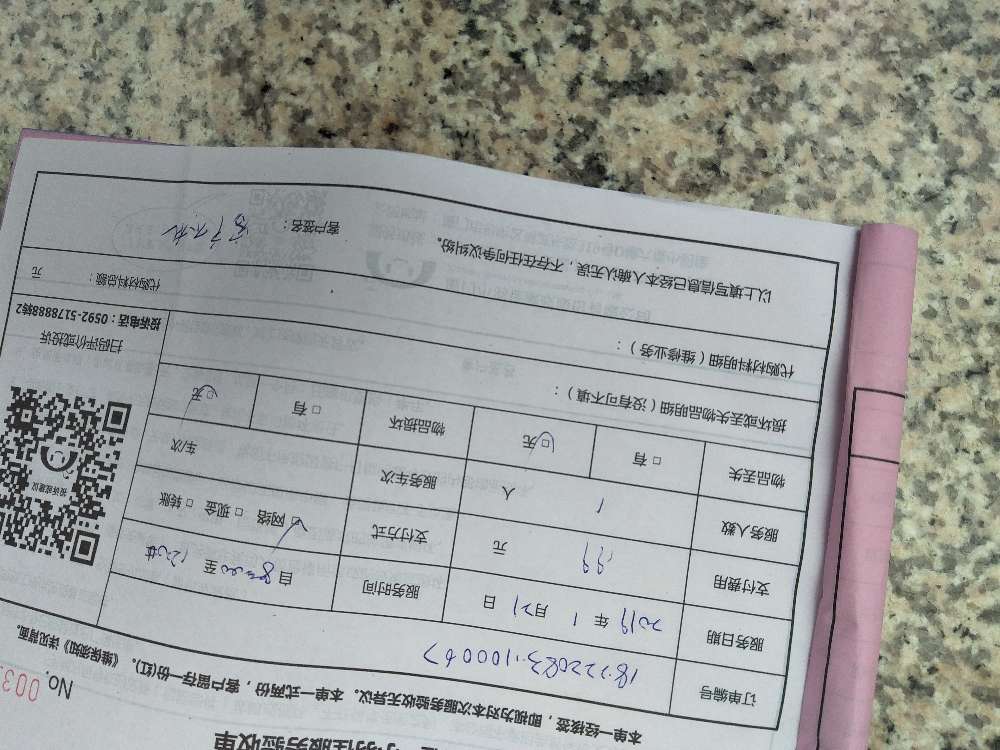 服务验收单
No. 003
本单一经核签，即视为对本次服务验收无异议。本单一式两份，客户留存一份(红)。《维保须知》详见背面。
订单编号
服务日期 2019 年 1 月 21 日 服务时间 自 8:00 至
支付费用 199 元 支付方式 ☑ 网络 □ 现金 □ 转账
服务人数 1 人 服务车次 车次
物品丢失 □ 有 ☑ 无 物品损坏 □ 有 ☑ 无
损坏或丢失物品明细（没有可不填）：
代购材料明细（维修业务）：
代购材料总额： 元
以上填写信息已经本人确认无误，不存在任何争议纠纷。 客户签名：
投诉或建议
扫码评价或投诉
投诉电话：0592-5178888转2